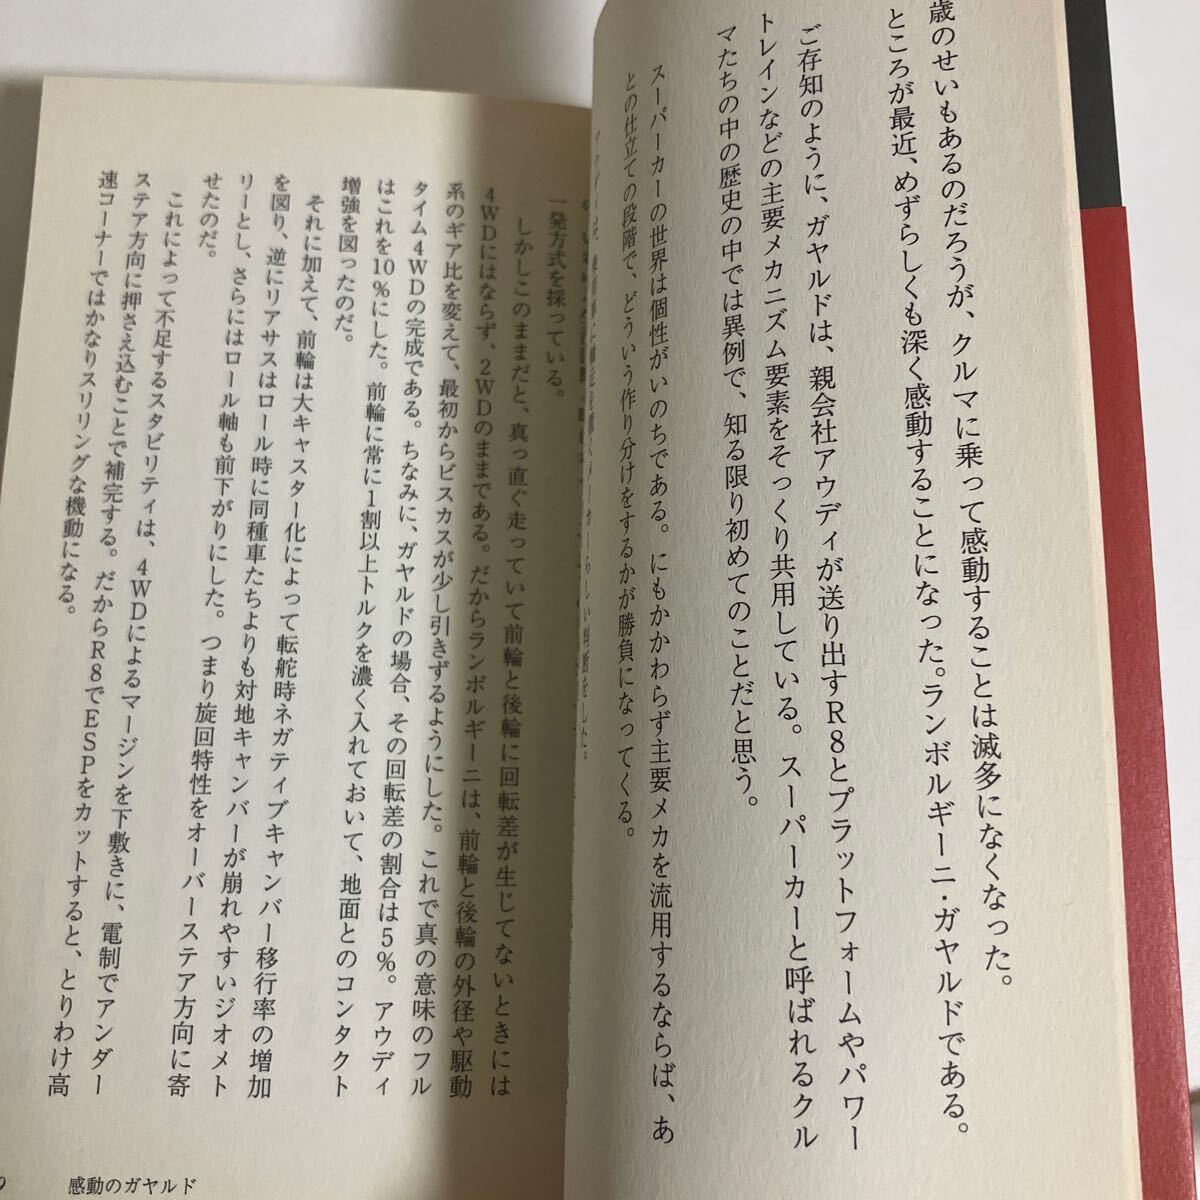 歳のせいもあるのだろうが、クルマに乗って感動することは滅多になくなった。
ところが最近、めずらしくも深く感動することになった。ランボルギーニ・ガヤルドである。
ご存知のように、ガヤルドは、親会社アウディが送り出すR8とプラットフォームやパワー
トレインなどの主要メカニズム要素をそっくり共用している。スーパーカーと呼ばれるクル
マたちの中の歴史の中では異例で、知る限り初めてのことだと思う。
スーパーカーの世界は個性がいのちである。にもかかわらず主要メカを流用するならば、あ
との仕立ての段階で、どういう作り分けをするかが勝負になってくる。
らしい判断をした。
一発方式を採っている。
しかしこのままだと、真っ直ぐ走っていて前輪と後輪に回転差が生じてないときには
4WDにはならず、2WDのままである。だからランボルギーニは、前輪と後輪の外径や駆動
系のギア比を変えて、最初からビスカスが少し引きずるようにした。これで真の意味のフル
タイム4WDの完成である。ちなみに、ガヤルドの場合、その回転差の割合は5%。アウディ
はこれを10%にした。前輪に常に1割以上トルクを濃く入れておいて、地面とのコンタクト
増強を図ったのだ。
それに加えて、前輪は大キャスター化によって転舵時ネガティブキャンバー移行率の増加
を図り、逆にリアサスはロール時に同種車たちよりも対地キャンバーが崩れやすいジオメト
リーとし、さらにはロール軸も前下がりにした。つまり旋回特性をオーバーステア方向に寄
せたのだ。
これによって不足するスタビリティは、4WDによるマージンを下敷きに、電制でアンダー
ステア方向に押さえ込むことで補完する。だからR8でESPをカットすると、とりわけ高
速コーナーではかなりスリリングな機動になる。
9 感動のガヤルド